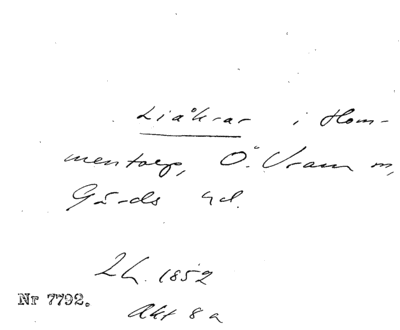 Liåkrar i Hom-
mentorp, Ö. Vram sn,
Gärds hd.
Lh. 1852
Nr 7792.
Akt 8a